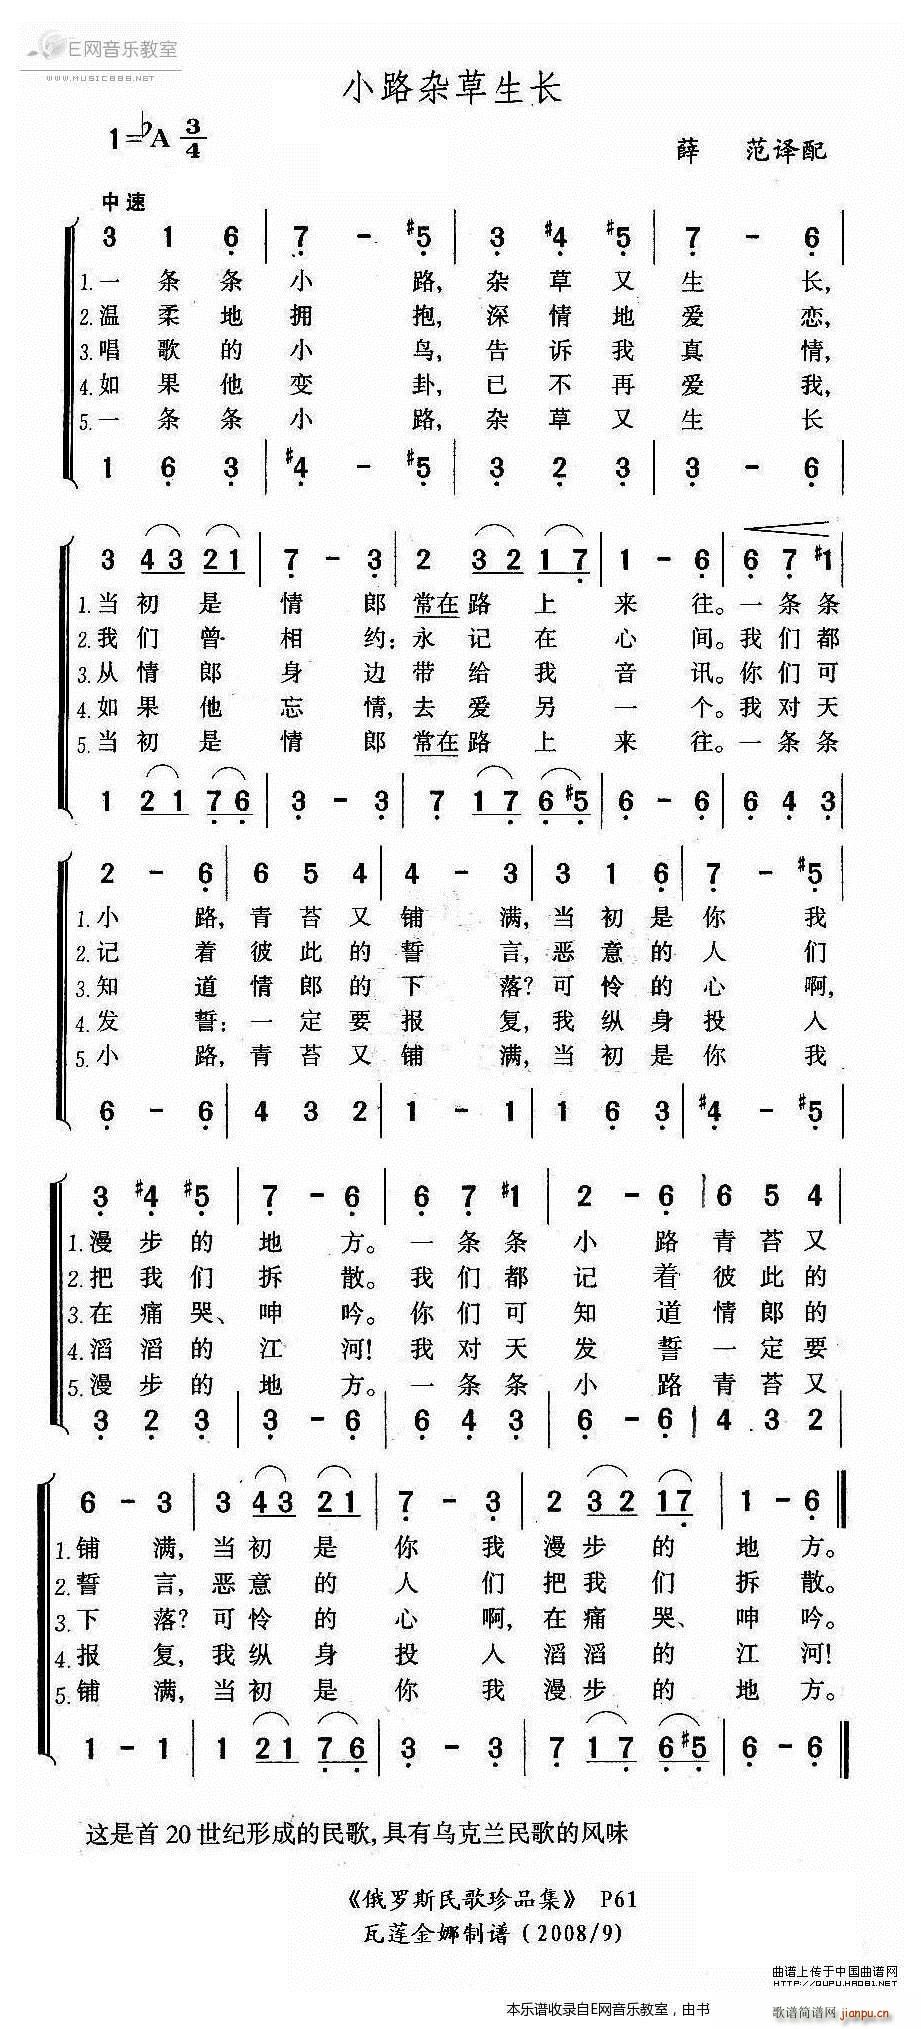 E网音乐教室
WWW.MUSIC888.NET
小路杂草生长
1=♭A 3/4
薛 范译配
中速
3 1 6̣ | 7̣ - #5̣ | 3̣ #4̣ #5̣ | 7̣ - 6̣ |
1.一条条小路,杂草又生长,
2.温柔地拥抱,深情地爱恋,
3.唱歌的小鸟,告诉我真情,
4.如果他变卦,已不再爱我,
5.一条条小路,杂草又生长
1 6̣ 3̣ | #4̣ - #5̣ | 3̣ 2̣ 3̣ | 3̣ - 6̣ |
3 43 21 | 7̣ - 3̣ | 2 32 17̣ | 1 - 6̣ | 6̣ 7̣ #1 |
1.当初是情郎常在路上来往。一条条
2.我们曾相约:永记在心间。我们都
3.从情郎身边带给我音讯。你们可
4.如果他忘情,去爱另一个。我对天
5.当初是情郎常在路上来往。一条条
1 21 7̣6̣ | 3̣ - 3̣ | 7̣ 17̣ 6̣#5̣ | 6̣ - 6̣ | 6̣ 4̣ 3̣ |
2 - 6̣ | 6 5 4 | 4 - 3 | 3 1 6̣ | 7̣ - #5̣ |
1.小路,青苔又铺满,当初是你我
2.记着彼此的誓言,恶意的人们
3.知道情郎的下落?可怜的心啊,
4.发誓:一定要报复,我纵身投入
5.小路,青苔又铺满,当初是你我
6̣ - 6̣ | 4 3 2 | 1 - 1 | 1 6̣ 3̣ | #4̣ - #5̣ |
3̣ #4̣ #5̣ | 7̣ - 6̣ | 6̣ 7̣ #1 | 2 - 6̣ | 6 5 4 |
1.漫步的地方。一条条小路青苔又
2.把我们拆散。我们都记着彼此的
3.在痛哭、呻吟。你们可知道情郎的
4.滔滔的江河!我对天发誓一定要
5.漫步的地方。一条条小路青苔又
3̣ 2̣ 3̣ | 3̣ - 6̣ | 6̣ 4̣ 3̣ | 6̣ - 6̣ | 4 3 2 |
6 - 3 | 3 43 21 | 7̣ - 3̣ | 2 32 17̣ | 1 - 6̣ ‖
1.铺满,当初是你我漫步的地方。
2.誓言,恶意的人们把我们拆散。
3.下落?可怜的心啊,在痛哭、呻吟。
4.报复,我纵身投入滔滔的江河!
5.铺满,当初是你我漫步的地方。
1 - 1 | 1 21 7̣6̣ | 3̣ - 3̣ | 7̣ 17̣ 6̣#5̣ | 6̣ - 6̣ ‖
这是首20世纪形成的民歌,具有乌克兰民歌的风味
《俄罗斯民歌珍品集》 P61
瓦莲金娜制谱(2008/9)
曲谱上传于中国曲谱网
HTTP://QUPU.HAO81.NET
本乐谱收录自E网音乐教室，由书
歌谱简谱网 jianpu.cn